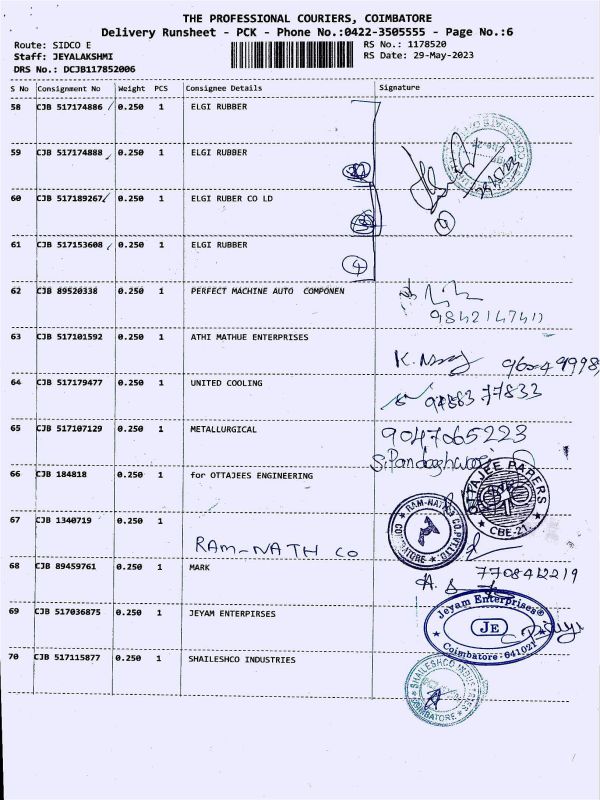 THE PROFESSIONAL COURIERS, COIMBATORE
Delivery Runsheet - PCK - Phone No.:0422-3505555 - Page No.:6
Route: SIDCO E
RS No.: 1178520
Staff: JEYALAKSHMI
RS Date: 29-May-2023
DRS No.: DCJB117852006
S No Consignment No Weight PCS Consignee Details Signature
58 CJB 517174886 0.250 1 ELGI RUBBER
59 CJB 517174888 0.250 1 ELGI RUBBER
60 CJB 517189267 0.250 1 ELGI RUBER CO LD
61 CJB 517153608 0.250 1 ELGI RUBBER
4
4
62 CJB 89520338 0.250 1 PERFECT MACHINE AUTO COMPONEN
9842147411
63 CJB 517101592 0.250 1 ATHI MATHUE ENTERPRISES
64 CJB 517179477 0.250 1 UNITED COOLING
77833
65 CJB 517107129 0.250 1 METALLURGICAL
9047065223
66 CJB 184818 0.250 1 for OTTAJEES ENGINEERING
OTTAJEE PAPERS
CBE-21.
67 CJB 1340719 0.250 1
RAM-NATH CO
RAM-NATH & CO.PVT.LTD
COIMBATORE
68 CJB 89459761 0.250 1 MARK
7708412219
69 CJB 517036875 0.250 1 JEYAM ENTERPIRSES
Jeyam Enterprises®
JE
Coimbatore - 641021
70 CJB 517115877 0.250 1 SHAILESHCO INDUSTRIES
SHAILESHCO INDUSTRIES
COIMBATORE